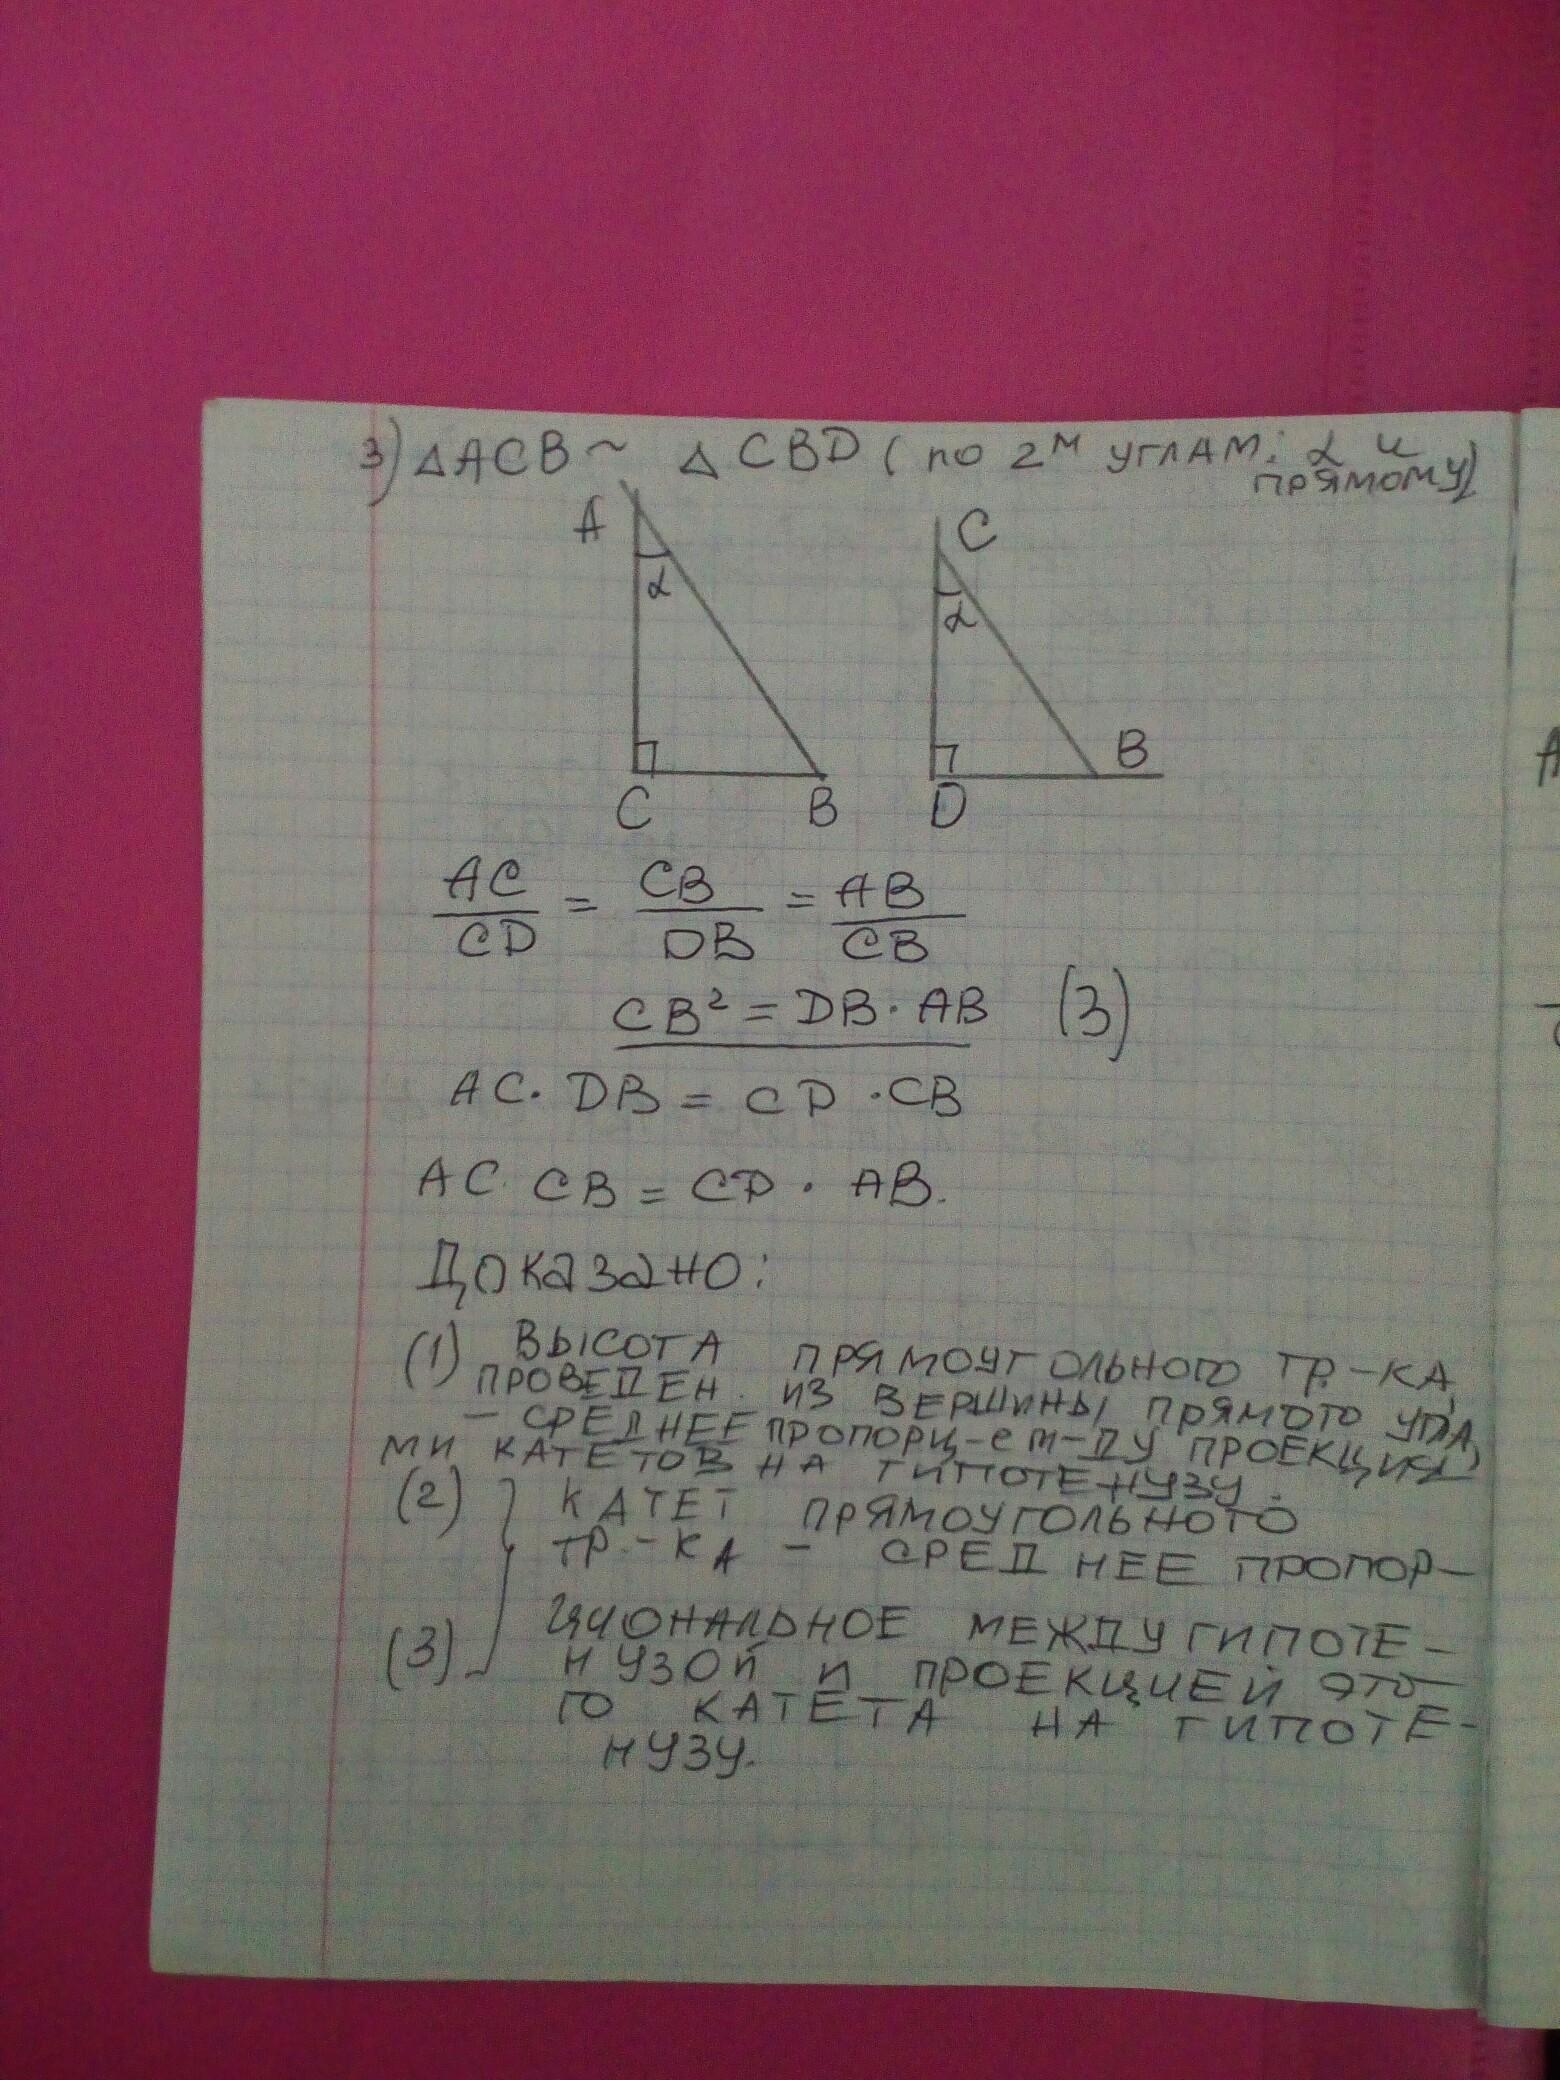 3) △ACB ~ △CBD (по 2м углам: α и
прямому)
A
α
C
B
C
α
D
B
AC/CD = CB/DB = AB/CB
CB² = DB · AB (3)
AC · DB = CD · CB
AC · CB = CD · AB.
Доказано:
(1) ВЫСОТА ПРЯМОУГОЛЬНОГО ТР-КА,
ПРОВЕДЕН. ИЗ ВЕРШИНЫ ПРЯМОГО УГЛА,
- СРЕДНЕЕ ПРОПОРЦ-е М-ДУ ПРОЕКЦИЯ
МИ КАТЕТОВ НА ГИПОТЕНУЗУ.
(2) КАТЕТ ПРЯМОУГОЛЬНОГО
ТР.-КА - СРЕДНЕЕ ПРОПОР-
ЦИОНАЛЬНОЕ МЕЖДУ ГИПОТЕ-
(3) НУЗОЙ И ПРОЕКЦИЕЙ ЭТО-
ГО КАТЕТА НА ГИПОТЕ-
НУЗУ.